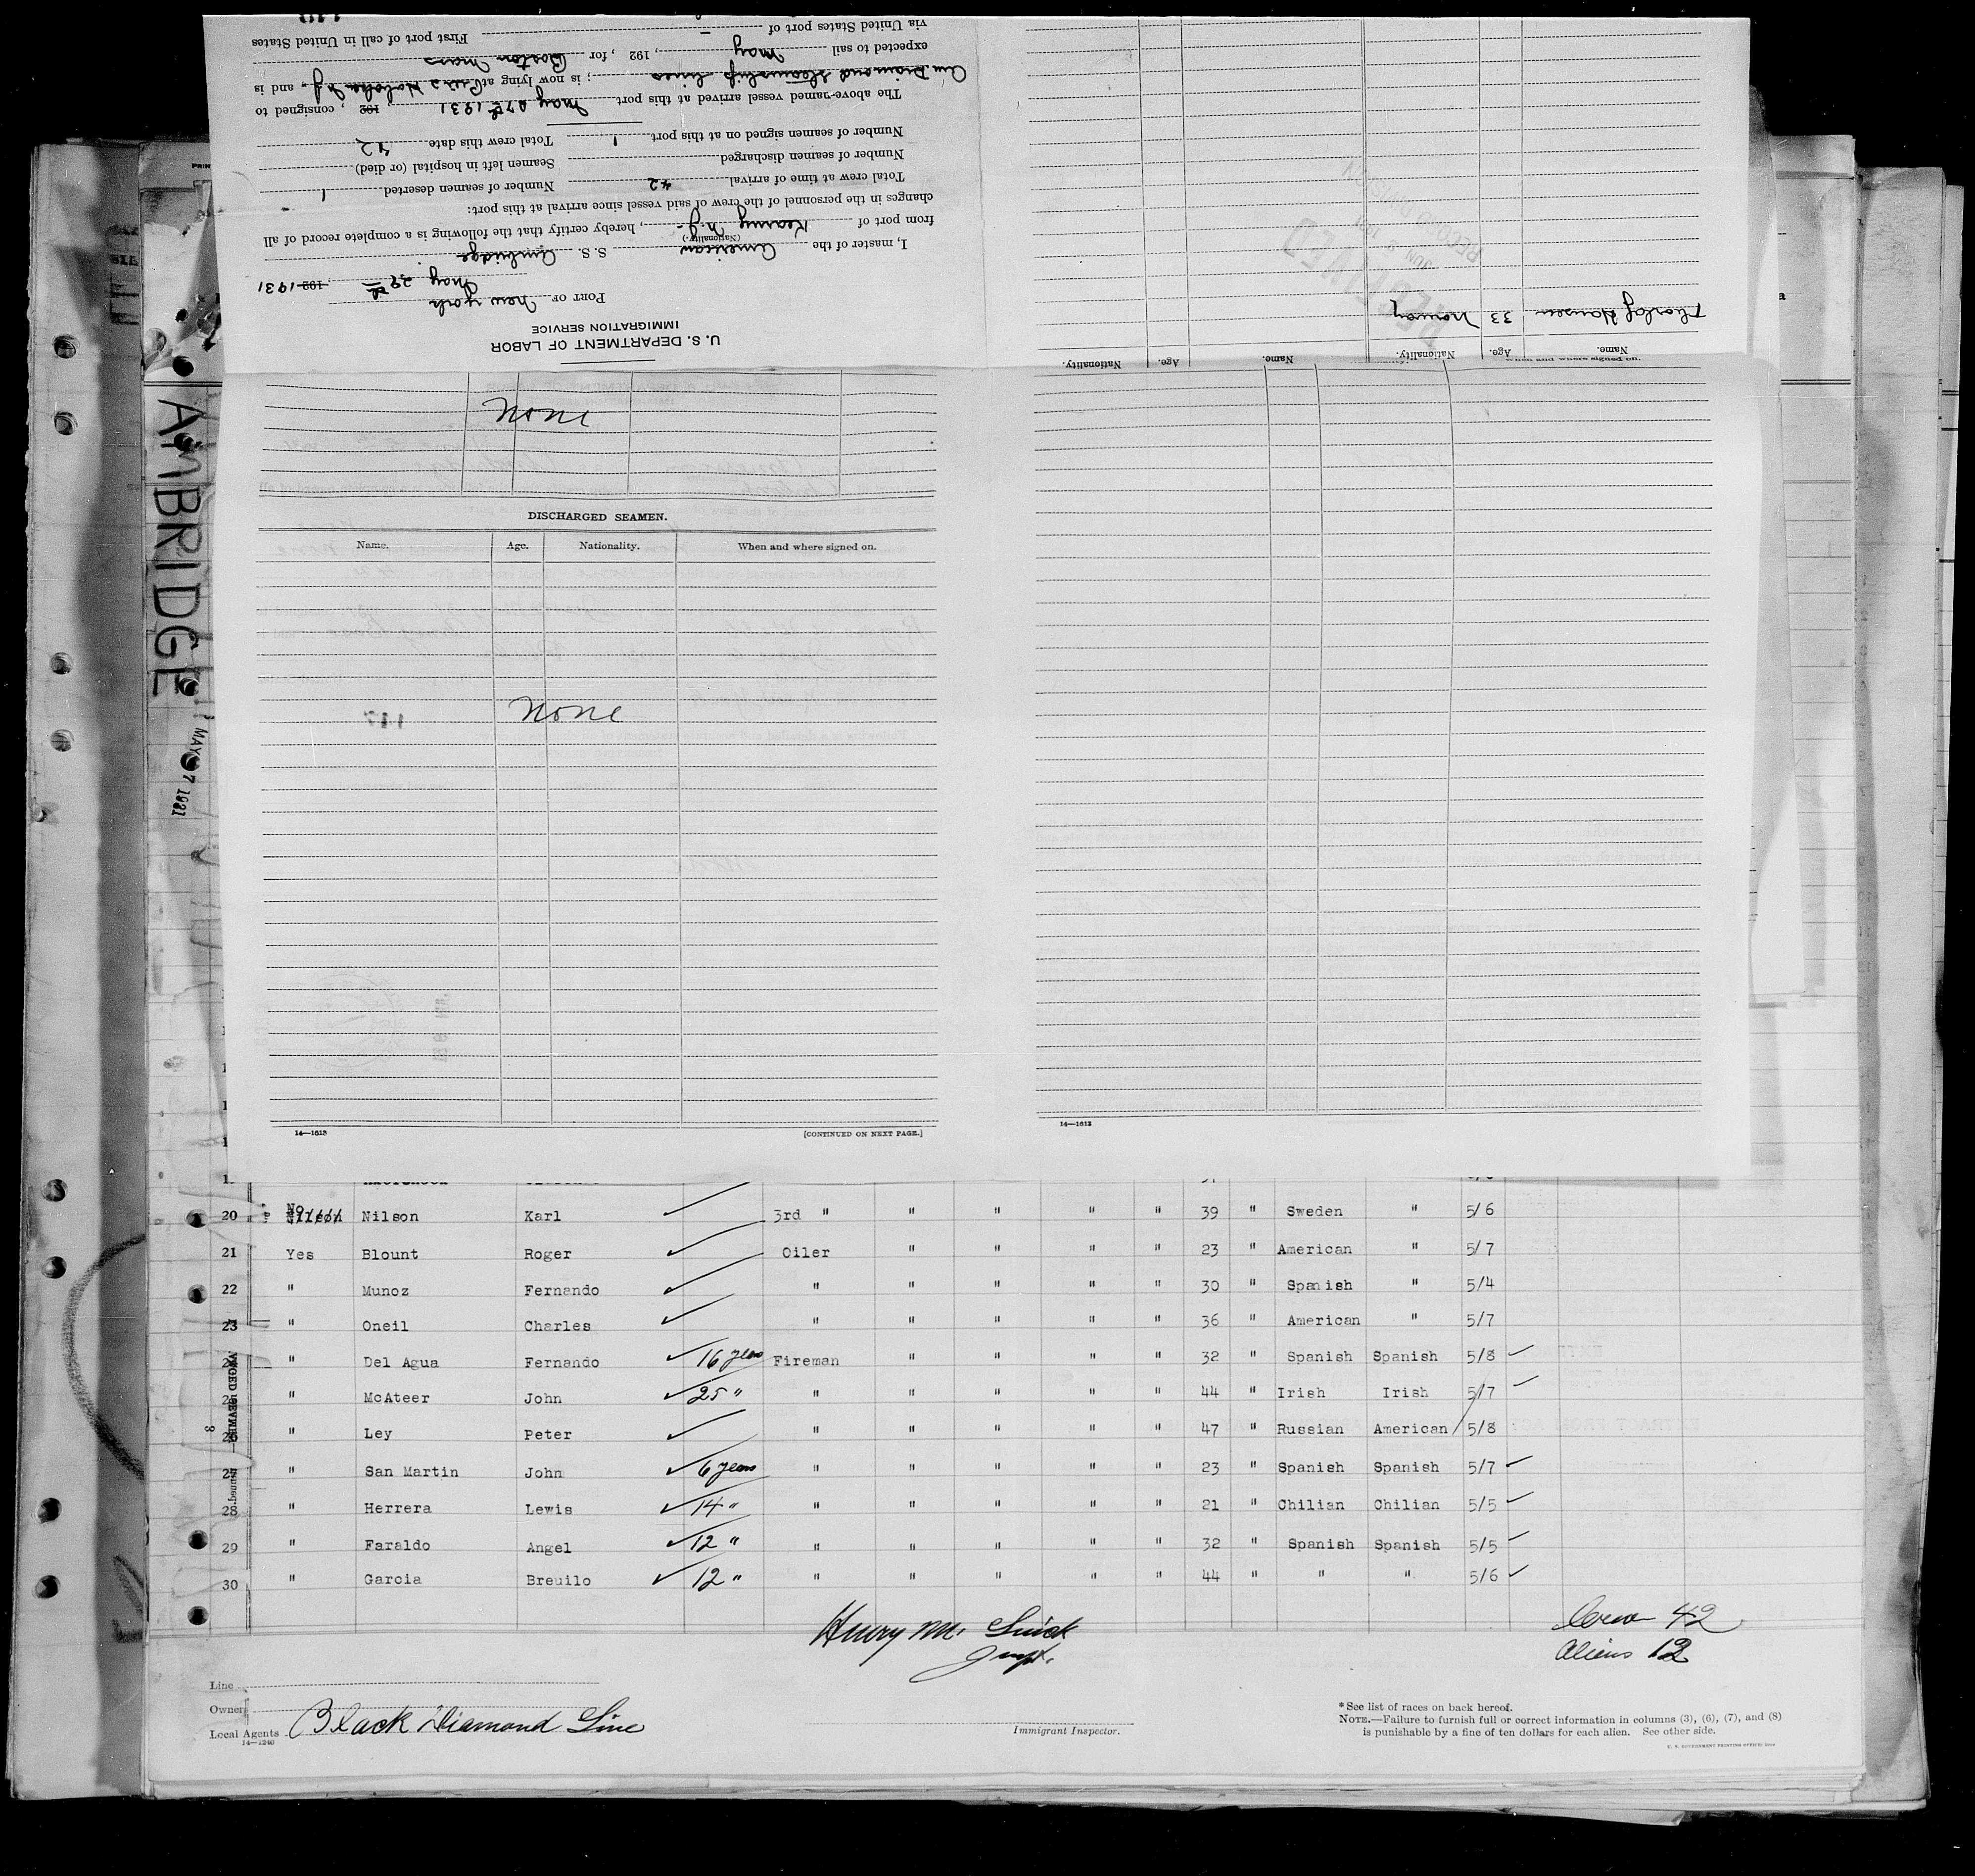 U. S. DEPARTMENT OF LABOR
IMMIGRATION SERVICE
PORT OF New York
May 29th, 192 1931
I, master of the American S. S. Ambridge
(Nationality.)
from port of Kearny N.J., hereby certify that the following is a complete record of all
changes in the personnel of the crew of said vessel since arrival at this port:
Total crew at time of arrival 42 Number of seamen deserted 1
Number of seamen discharged Seamen left in hospital (or died)
Number of seamen signed on at this port 1 Total crew this date 42
The above-named vessel arrived at this port May 27th 1931 192 , consigned to
Am Diamond Steamship Lines ; is now lying at Pier 2 Hoboken N.J., and is
expected to sail May , 192 , for Boston Mass
via United States port of - First port of call in United States
Name. Age. Nationality. Name. Age. Nationality.
When and where signed on.
Thorlof Hansen 33 Norway
RECEIVED
JUN
RECORD DIVISION
None
DISCHARGED SEAMEN.
Name. Age. Nationality. When and where signed on.
None
117
14—1613
[CONTINUED ON NEXT PAGE.]
14—1613
AMBRIDGE
MAY 7 1931
20 No Nilson Karl 3rd " " " " " 39 " Sweden " 5/6
21 Yes Blount Roger Oiler " " " " 23 " American " 5/7
22 " Munoz Fernando " " " " " 30 " Spanish " 5/4
23 " Oneil Charles " " " " " 36 " American " 5/7
24 " Del Agua Fernando 16 years Fireman " " " " 32 " Spanish Spanish 5/8
25 " McAteer John 25 " " " " " " 44 " Irish Irish 5/7
26 " Ley Peter " " " " " 47 " Russian American 5/8
27 " San Martin John 6 years " " " " " 23 " Spanish Spanish 5/7
28 " Herrera Lewis 14 " " " " " " 21 " Chilian Chilian 5/5
29 " Faraldo Angel 12 " " " " " " 32 " Spanish Spanish 5/5
30 " Garcia Breuilo 12 " " " " " " 44 " " " 5/6
Henry M.
Inspt.
Crew 42
Aliens 12
Line
Owner
Local Agents Black Diamond Line
14—1240
Immigrant Inspector.
* See list of races on back hereof.
NOTE.—Failure to furnish full or correct information in columns (3), (6), (7), and (8)
is punishable by a fine of ten dollars for each alien. See other side.